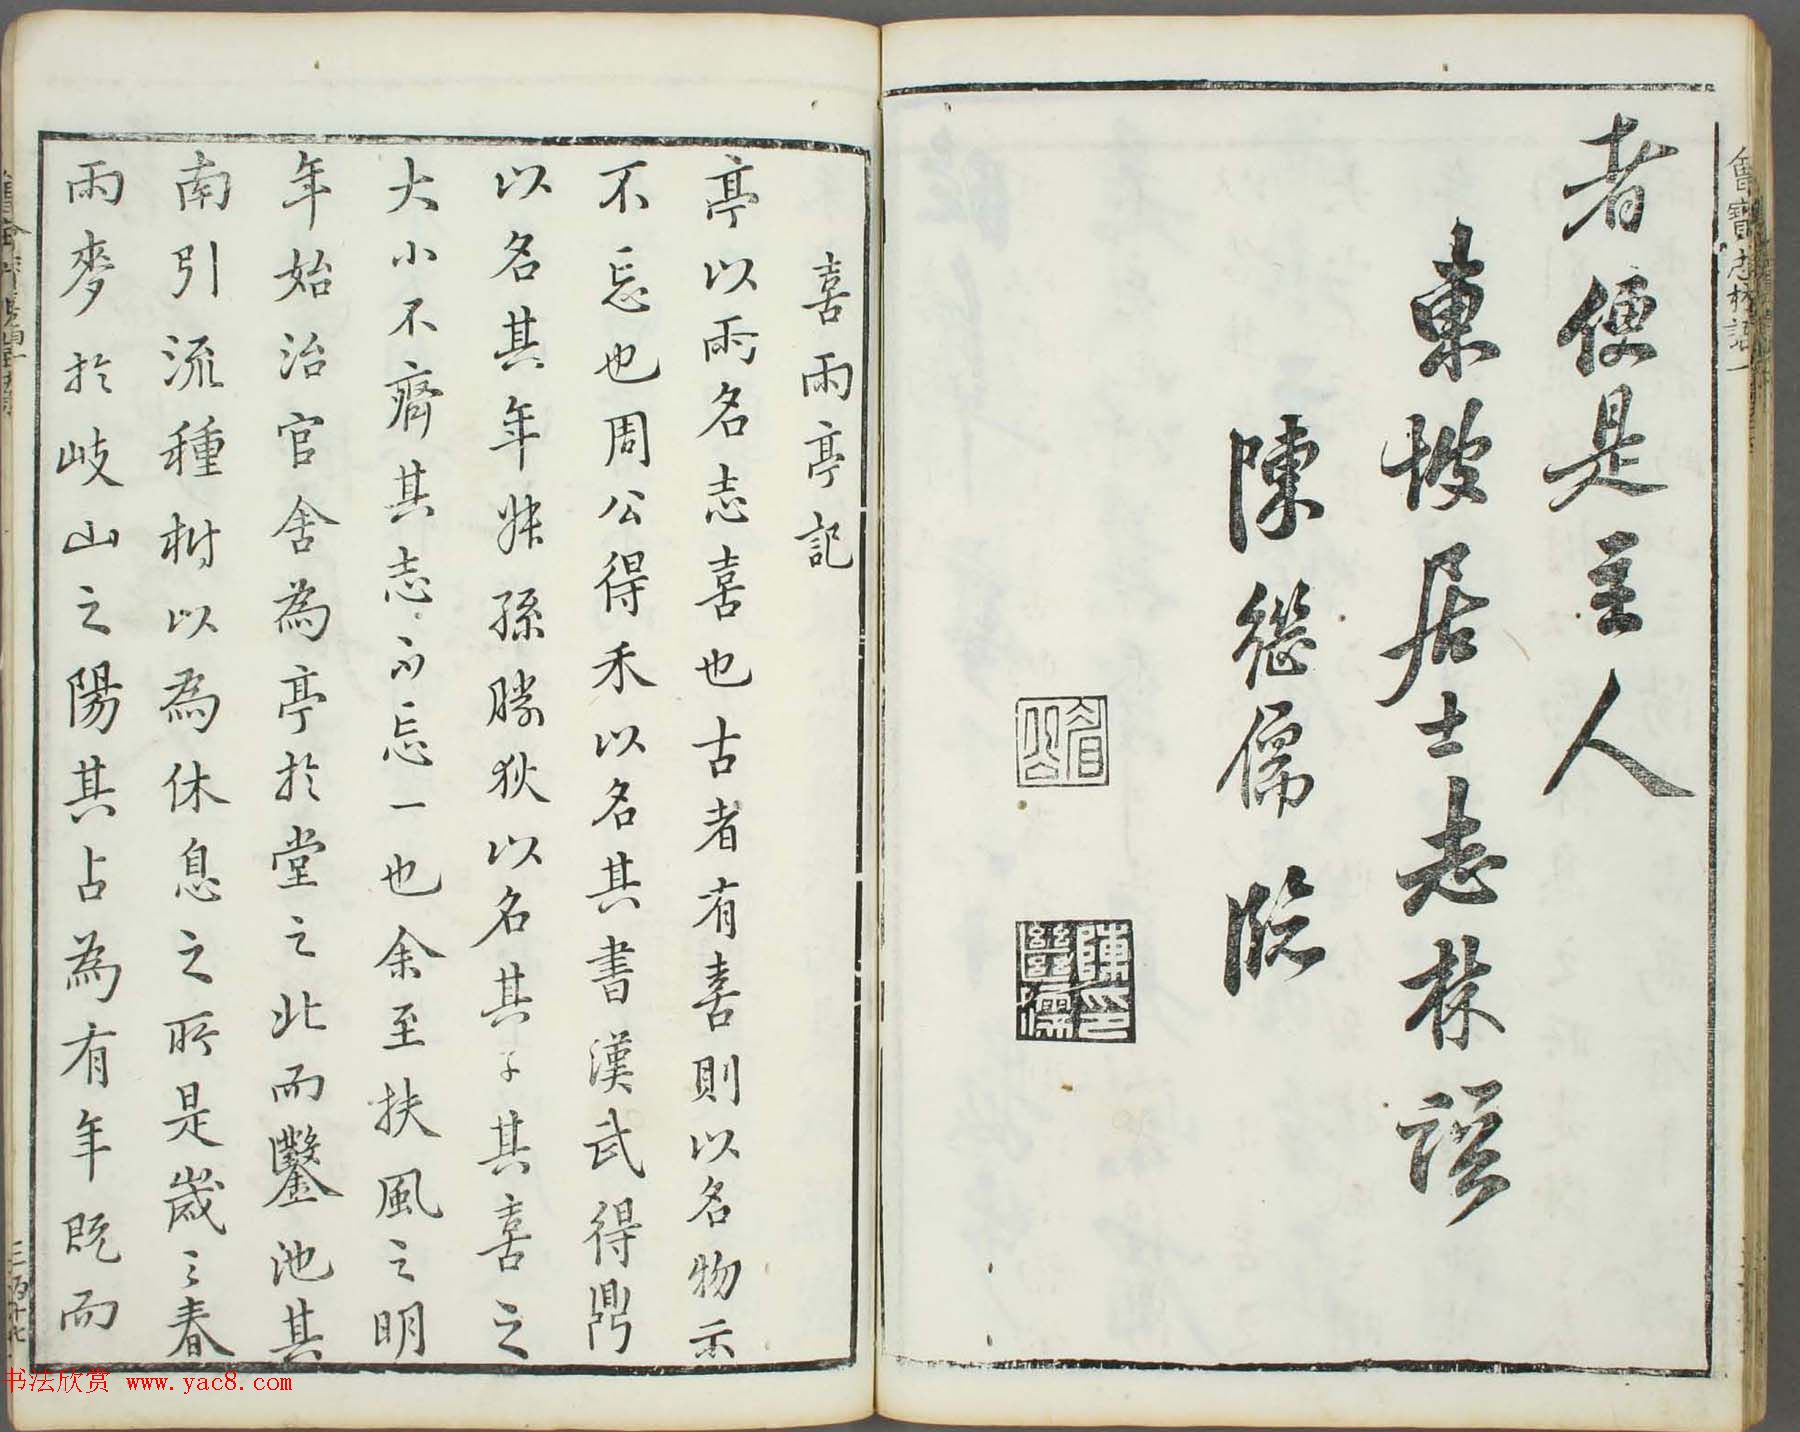 者便是主人
東坡居士志林
陳繼儒臨
眉公
陳印繼儒
喜雨亭記
亭以雨名志喜也古者有喜則以名物示
不忘也周公得禾以名其書漢武得鼎
以名其年叔孫勝狄以名其子其喜之
大小不齊其志不忘一也余至扶風之明
年始治官舍為亭於堂之北而鑿池其
南引流種樹以為休息之所是歲之春
雨麥於岐山之陽其占為有年既而
书法欣赏 www.yac8.com